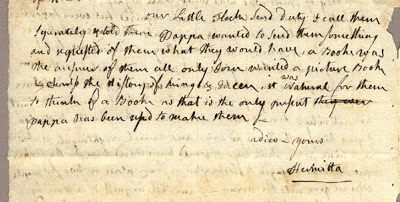 our Little flock send duty I call them
Separately & told them Pappa wanted to send them something
and requested of them what they would have, a Booke was
the answer of them all only Tom wanted a picture Booke
& the History of Kings & Queen, it was natural for them
to think of a Booke as that is the only present they ever
pappa has been used to make them
adieu - yours
Hermitta